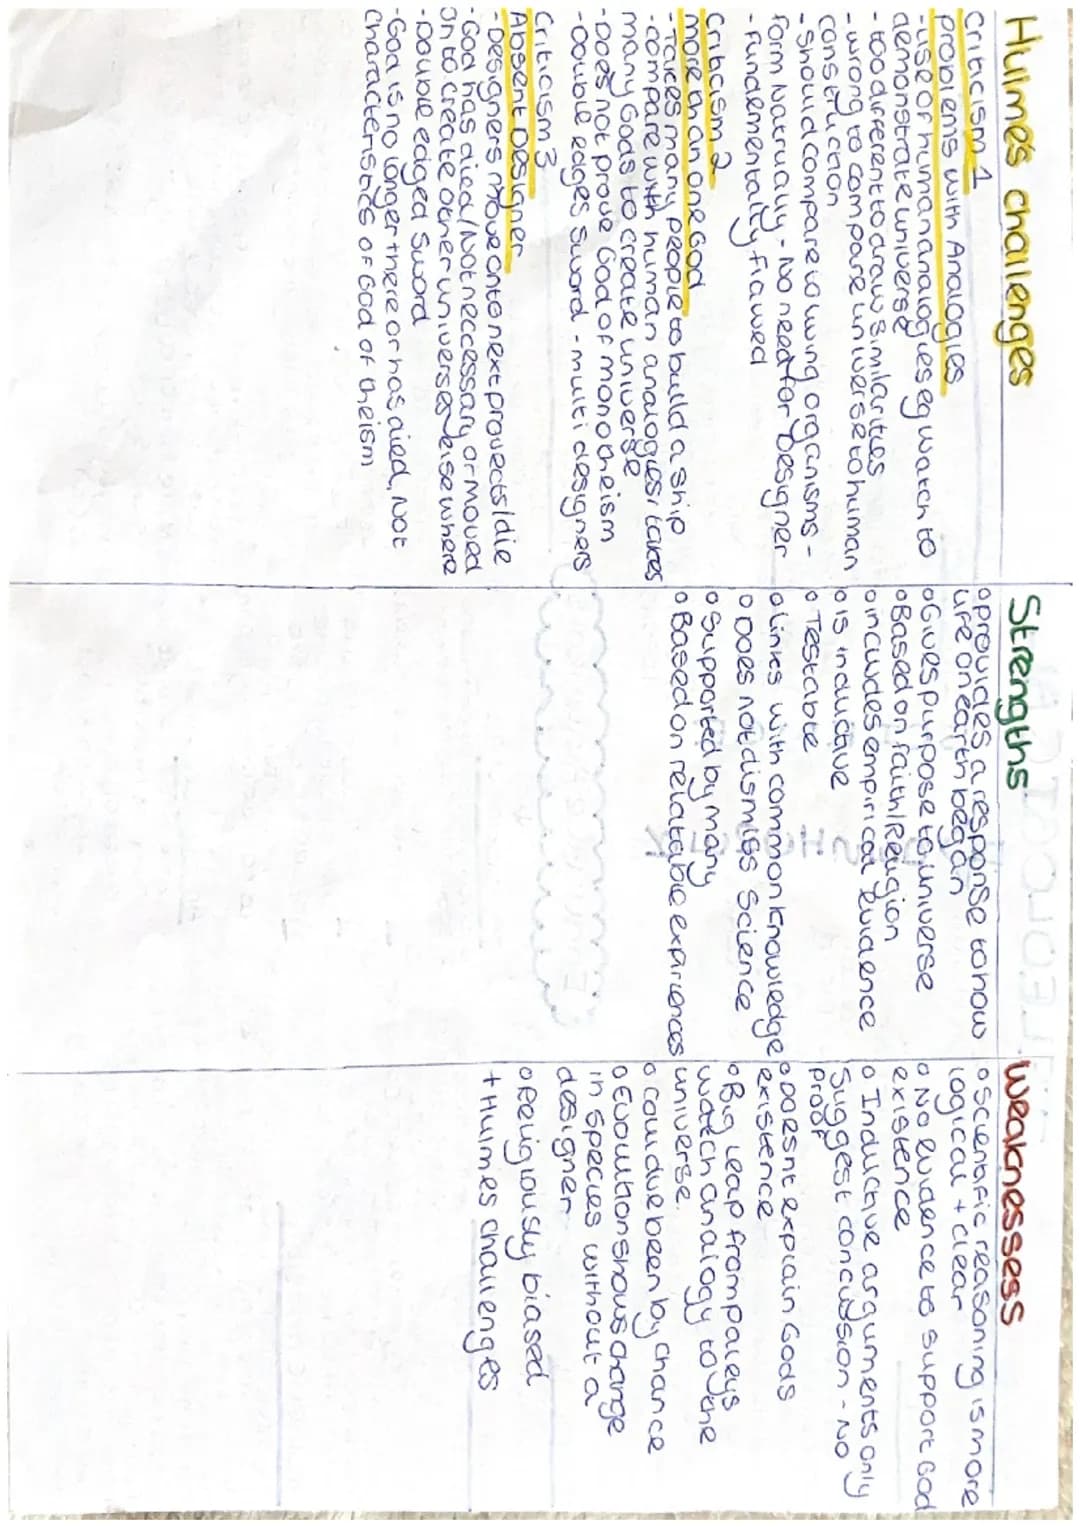 Humes challenges
Criticism 1
problems with Analogies
- use of human analogies eg watch to
demonstrate universe
- too different to draw similarities
- wrong to compare universe to human
construction
- should compare to living organisms -
form Natrually - No need for Designer
- Fundementally flawed
Criticism 2
more than one God
- Takes many people to build a ship
- compare with human analogies, takes
many Gods to create universe
- Does not prove God of monotheism
- Double edges sword - multi designers
Criticism 3
Absent Designer
- Designers move onto next projects/die
- God has died/Not neccessary or moved
on to create other universes elsewhere
- Double edged sword
- God is no longer there or has died, Not
characteristics of God of theism
Strengths
o provides a response to how
life on earth began
o Gives purpose to universe
o Based on faith/Religion
o includes empirical Evidence
o is inductive
o Testable
o Links with common knowledge
o Does not dismiss science
o Supported by many
o Based on relatable experiences
Weaknessess
o Scientific reasoning is more
logical + clear
o No Evidence to support God
existence
o Inductive arguments only
suggest conclusion - No
proof
o Doesnt explain Gods
existence
o Big leap from paleys
watch analogy to the
universe.
o could've been by chance
o Evoultion shows change
in species without a
designer
o Religiously biased
+ Humes challenges